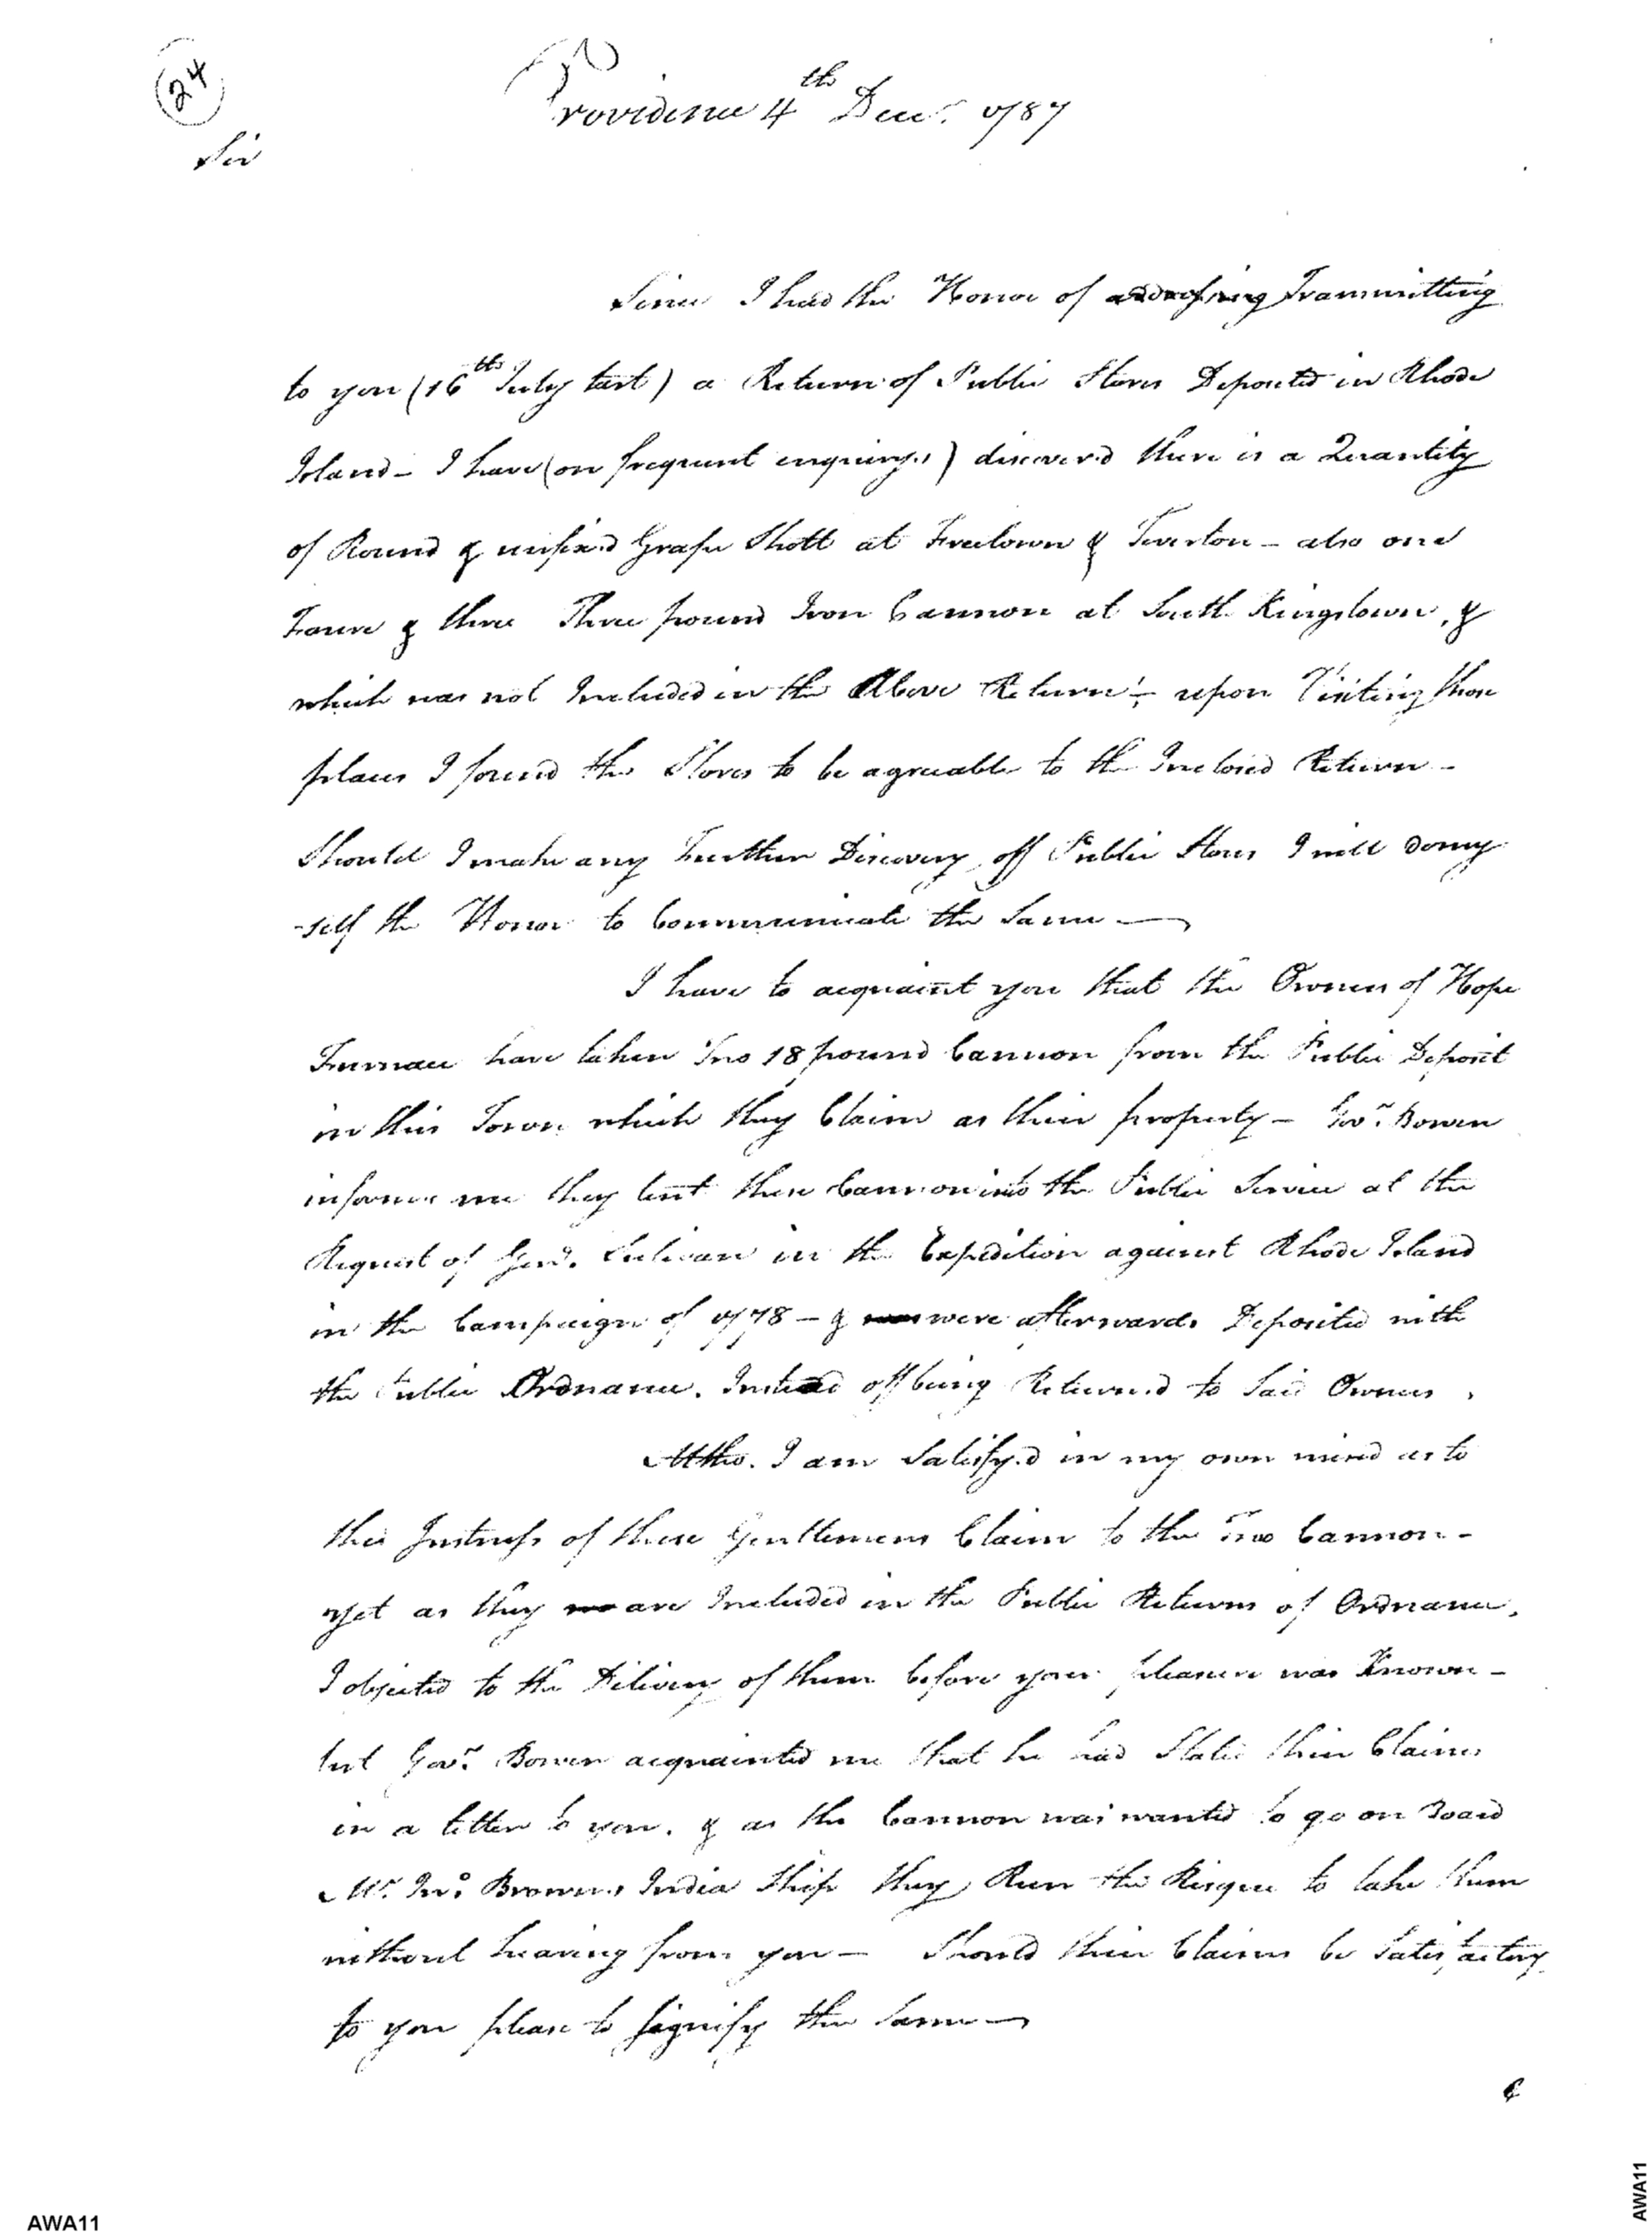 24
Providence 4th Decr. 1787
Sir
Since I had the Honor of addressing Transmitting
to you (16th July last) a Return of Public Stores Deposited in Rhode
Island - I have (on frequent enquirys) discover.d there is a Quantity
of Round & unfixed Grape Shott at Freetown & Tiverton - also one
Four & three Three pound Iron Cannon at South Kingstown, &
which was not Included in the Above Return - upon Visiting those
places I found the Stores to be agreeable to the Inclosed Return -
Should I make any Further Discovery off Public Stores I will do my
-self the Honor to Communicate the Same -
I have to acquaint you that the Owners of Hope
Furnace have taken Two 18 pound Cannon from the Public Deposit
in this Town which they Claim as their property - Govr. Bowen
informs me they lent these Cannon into the Public Service at the
Request of Genl. Sulivan in the Expedition against Rhode Island
in the Campaign of 1778 - & were afterwards Deposited with
the Public Ordnance. Instead off being Return.d to Said Owners.
Altho. I am Satisfy.d in my own mind as to
the Justness of these Gentlemens Claim to the Two Cannon -
yet as they are Included in the Public Returns of Ordnance,
I objected to the Delivery of them before your pleasure was Known -
but Govr. Bowen acquainted me that he had Stated their Claims
in a letter to you. & as the Cannon was wanted to go on Board
Mr. Jno. Browns India Ship they Run the Risque to take them
without hearing from you - Should their Claims be Satisfactory
to you please to signify the Same -
AWA11
AWA11